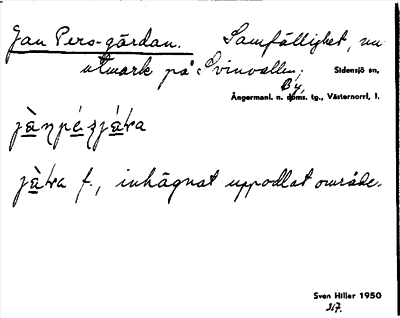 Jan Pers-gärdan. Samfällighet, nu
utmark på Svinvallen;
Sidensjö sn,
By,
Ångermanl. n. doms. tg., Västernorrl. l.
jä̀ŋpéʂjä́ra
jä̀ra f., inhägnat uppodlat område.
Sven Hiller 1950
317.